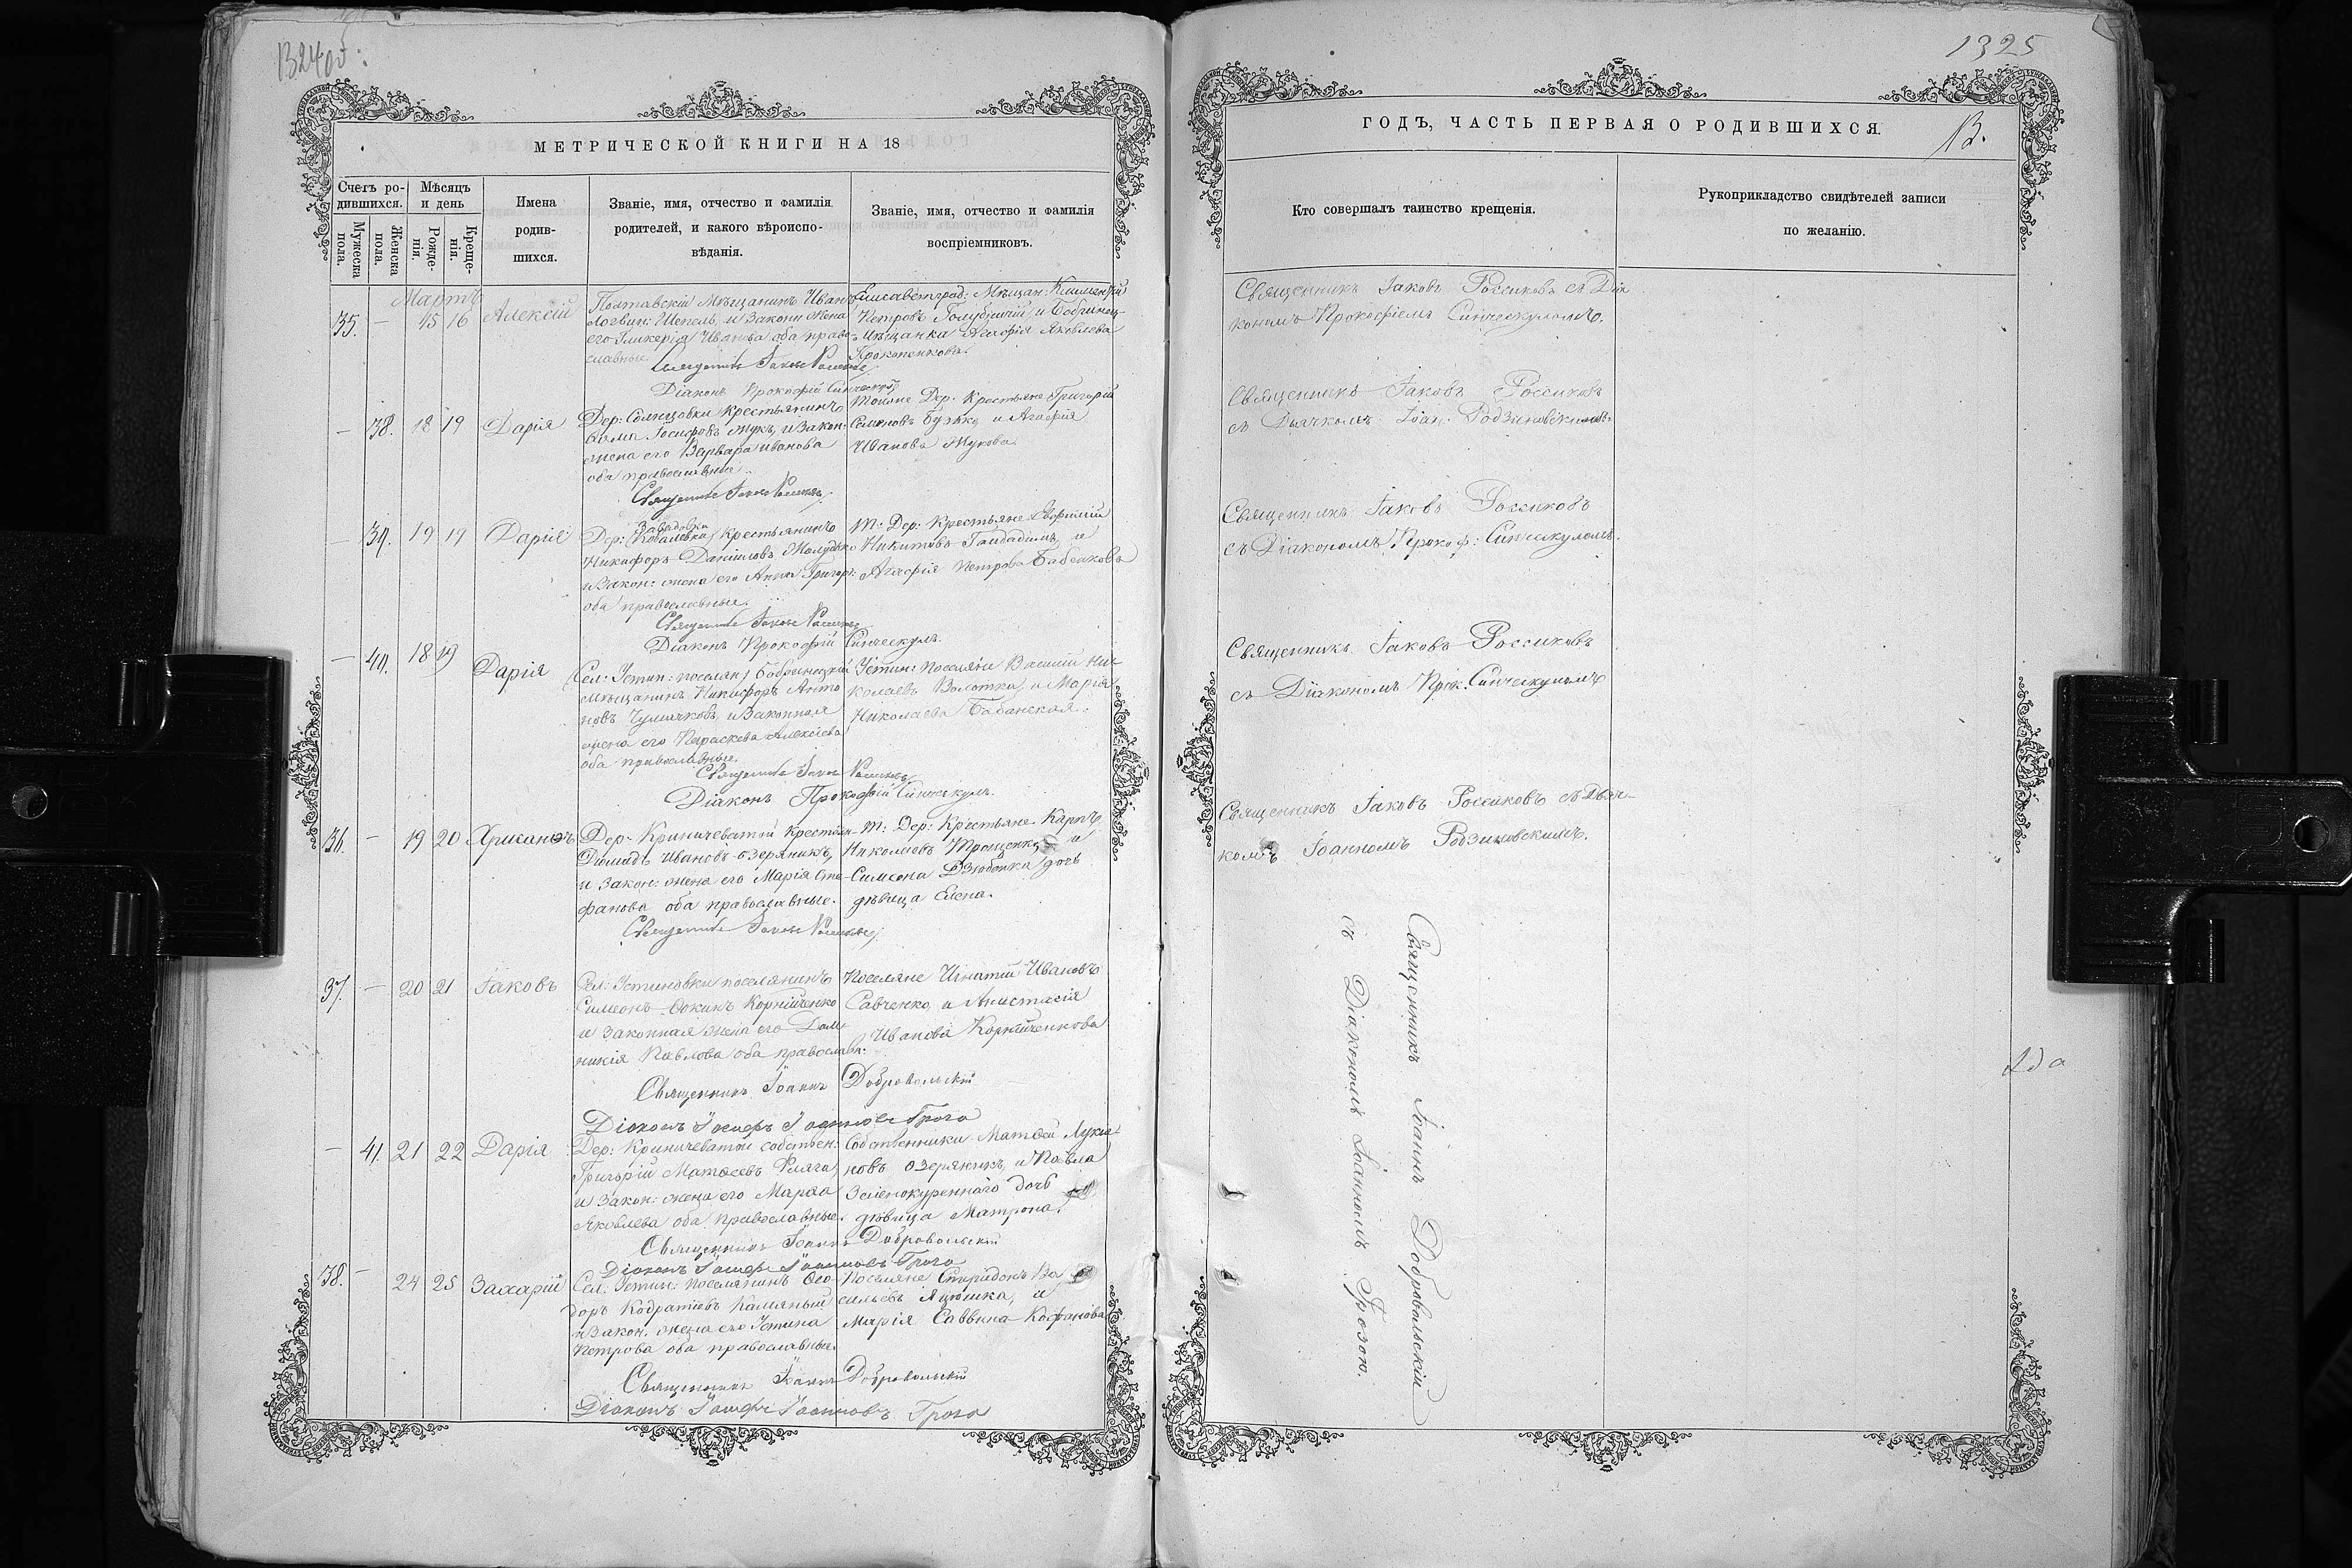 1324 об:
МЕТРИЧЕСКОЙ КНИГИ НА 18
Счетъ ро-
дившихся.
Мужеска
пола.
Женска
пола.
Мѣсяцъ
и день
Рожде-
нія.
Креще-
нія.
Имена
родив-
шихся.
Званіе, имя, отчество и фамилія
родителей, и какого вѣроиспо-
вѣданія.
Званіе, имя, отчество и фамилія
воспріемниковъ.
Мартъ
35. — 15 16 Алексій
Полтавскій Мѣщанинъ Иванъ
Логвин: Шепель, и Законн жена
его Гликерія Иванова оба право-
славные
Елисаветград: Мѣщан:
Петровъ Голубничій, и Бобринец-
Мѣщанка Агафія Яковлева
Священникъ Іаковъ Россиковъ
Діаконъ Прокофій Синческулъ
— 38. 18 19 Дарія
Дер: Солнцовки крестьянинъ
Іосифовъ Жукъ, и Закон:
жена его Варвара Иванова
оба православные
Тойже Дер. Крестьяне Григорій
Семеновъ и Агафія
Иванова Жукова.
Священникъ Іаковъ Россиковъ
— 39. 19 19 Даріе
Завадовки
Дер: (Ковалевка) Крестьянинъ
Никифоръ Даніиловъ
и Закон: жена его Анна Григор:
оба православные.
Т: Дер: Крестьяне
Никитовъ и
Агафія Петрова Бабенкова
Священникъ Іаковъ Россиковъ
Діаконъ Прокофій Синческулъ.
— 40. 18 19 Дарія
Сел: Устин: поселян) Бобринецкій
Мѣщанинъ Никифоръ Анто
новъ и Законная
жена его Параскева Алексіева
оба православные.
Устин: поселяне Василій Ни-
колаевъ Волотка, и Марія
Николаева Бабанская.
Священникъ Іаковъ Россиковъ
Діаконъ Прокофій Синческулъ.
36. — 19 20 Хрисанѳъ
Дер. Криничеватой крестьян-
Діомидъ Ивановъ Озеряникъ,
и Закон: жена его Марія Сте-
фанова оба православные.
Т: Дер: Крестьяне Карпъ
Николаевъ Трощенко и
Симеона дочь
дѣвица Елена.
Священникъ Іаковъ Россиковъ
37. — 20 21 Іаковъ
Сел: Устиновки поселянинъ
Симеонъ Ѳокинъ Корнійченко
и Законная жена его Дом-
никія Павлова оба православ:
Поселяне Игнатій Ивановъ
Савченко, и Анастасія
Иванова Корнійченкова
Священникъ Іоаннъ Добровольскій
Діаконъ Іосифъ Іоанновъ Гроза
— 41. 21 22 Дарія
Дер: Криничеватой собствен:
Григорій Матѳеевъ
и Закон: жена его Марѳа
Яковлева оба православные.
Собственники Матѳей Лукья
новъ Озеряникъ, и Павла
Зеленокуреннаго дочь
дѣвица Матрона.
Священникъ Іоаннъ Добровольскій
Діаконъ Іосифъ Іоанновъ Гроза
38. — 24 25 Захарій
Сел. Устин: поселянинъ Ѳео-
доръ Кодратіовъ
и Закон. жена его Устина
Петрова оба православные.
Поселяне Спиридонъ Ва
сильевъ и
Марія Саввина
Священникъ Іоаннъ Добровольскій
Діаконъ Іосифъ Іоанновъ Гроза
1325
ГОДЪ, ЧАСТЬ ПЕРВАЯ О РОДИВШИХСЯ.
13.
Кто совершалъ таинство крещенія.
Рукоприкладство свидѣтелей записи
по желанію.
Священникъ Іаковъ Россиковъ съ Діа
кономъ Прокофіемъ Синческуломъ.
Священникъ Іаковъ Россиковъ
съ Дьячкомъ Іоан: Родзиновскимъ.
Священникъ Іаковъ Россиковъ
съ Діакономъ Прокоф: Синческуломъ.
Священникъ Іаковъ Россиковъ
съ Діакономъ Прок. Синческуломъ
Священникъ Іаковъ Россиковъ съ Дьяч-
комъ Іоанномъ Родзиновскимъ.
Священникъ Іоаннъ Добровольскій
съ Діакономъ Іоанномъ Грозою.